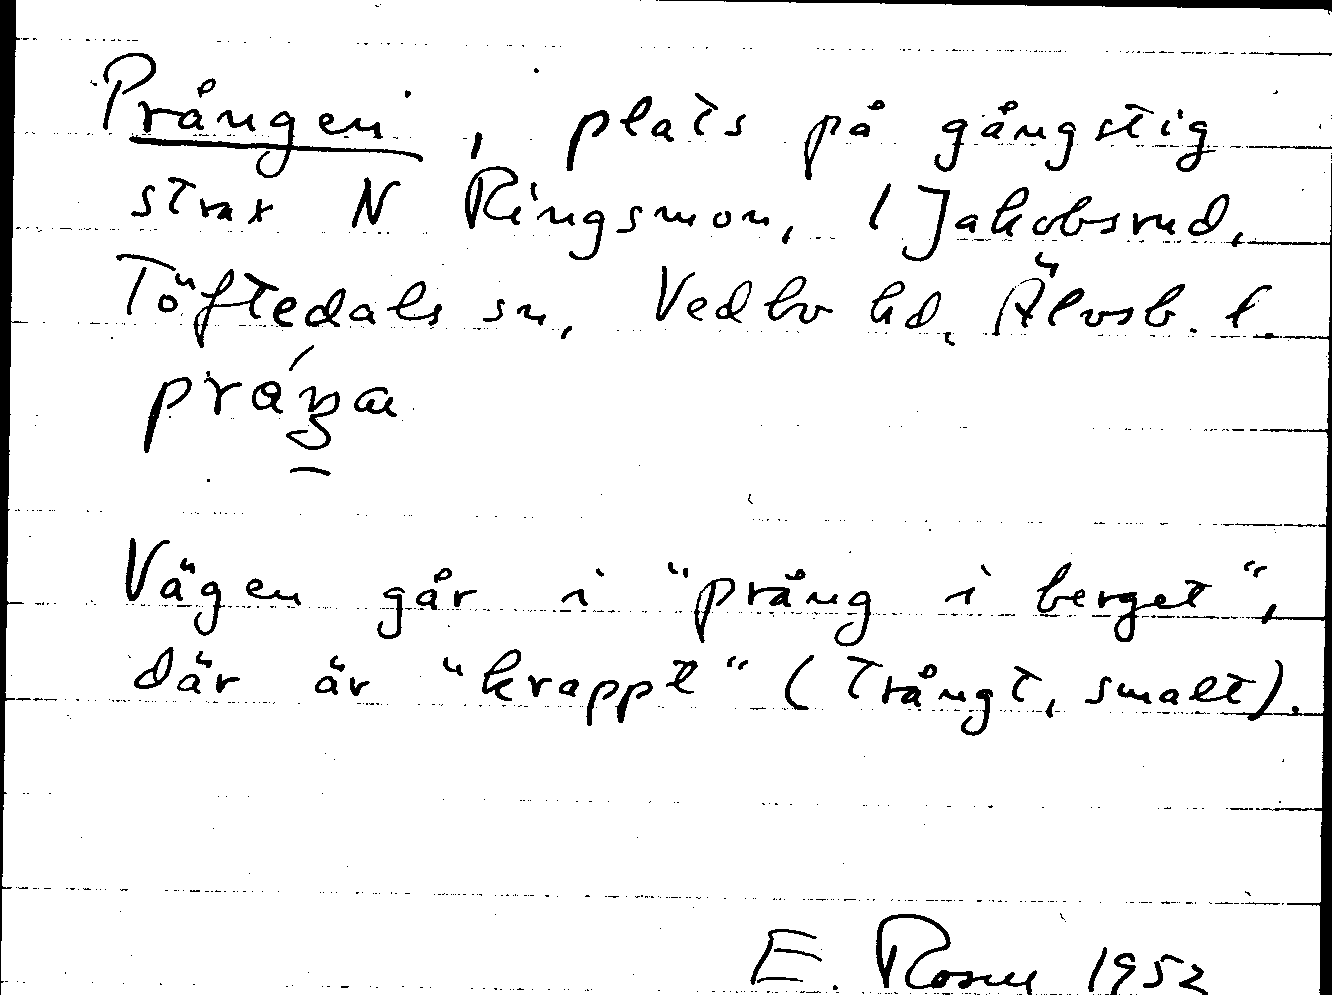 Prången, plats på gångstig
strax N Ringsmon, i Jakobsrud,
Töftedals sn, Vedbo hd, Älvsb. l.
Vägen går i "prång i berget",
där är "krappt" (trångt, smalt).
E. 1952